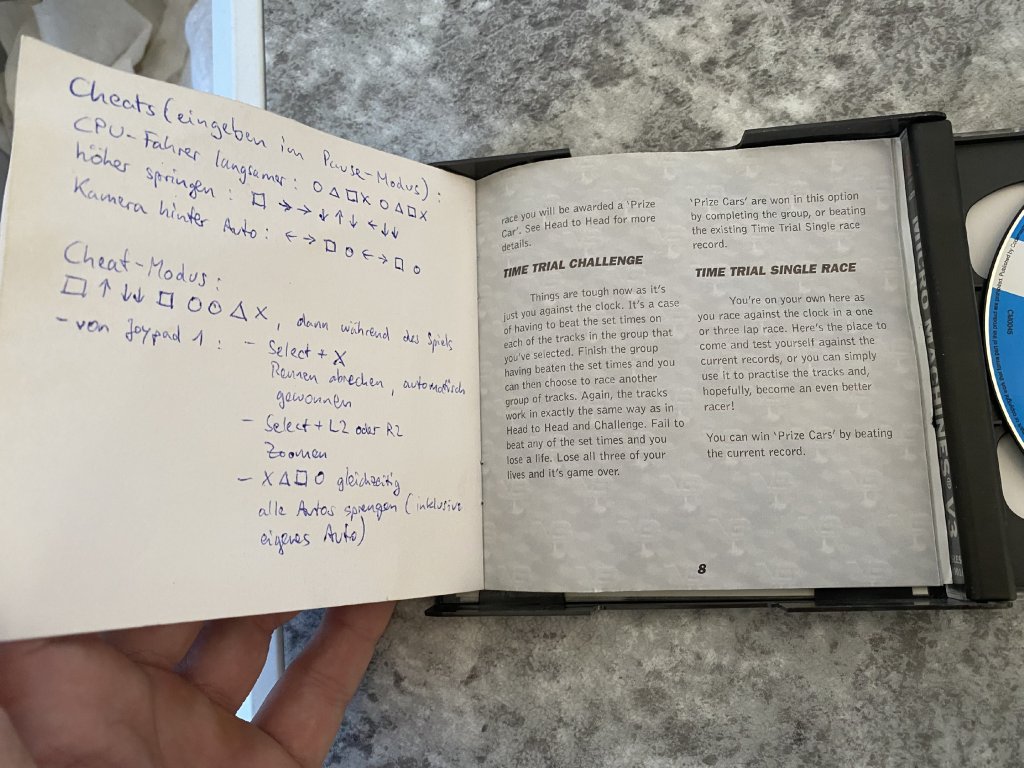 Cheats (eingeben im Pause-Modus):
CPU-Fahrer langsamer: ○ △ □ X ○ △ □ X
höher springen: □ → → ↓ ↑ ↓ ← ↓ ↓
Kamera hinter Auto: ← → □ ○ ← → □ ○
Cheat-Modus:
□ ↑ ↓ ↓ □ ○ ○ △ X, dann während des Spiels
- von Joypad 1: - Select + X
Rennen abrechen, automatisch
gewonnen
- Select + L2 oder R2
Zoomen
- X △ □ ○ gleichzeitig
alle Autos sprengen (inklusive
eigenes Auto)
race you will be awarded a 'Prize
Car'. See Head to Head for more
details.
TIME TRIAL CHALLENGE
Things are tough now as it's
just you against the clock. It's a case
of having to beat the set times on
each of the tracks in the group that
you've selected. Finish the group
having beaten the set times and you
can then choose to race another
group of tracks. Again, the tracks
work in exactly the same way as in
Head to Head and Challenge. Fail to
beat any of the set times and you
lose a life. Lose all three of your
lives and it's game over.
'Prize Cars' are won in this option
by completing the group, or beating
the existing Time Trial Single race
record.
TIME TRIAL SINGLE RACE
You're on your own here as
you race against the clock in a one
or three lap race. Here's the place to
come and test yourself against the
current records, or you can simply
use it to practise the tracks and,
hopefully, become an even better
racer!
You can win 'Prize Cars' by beating
the current record.
8
MICRO MACHINES® V3